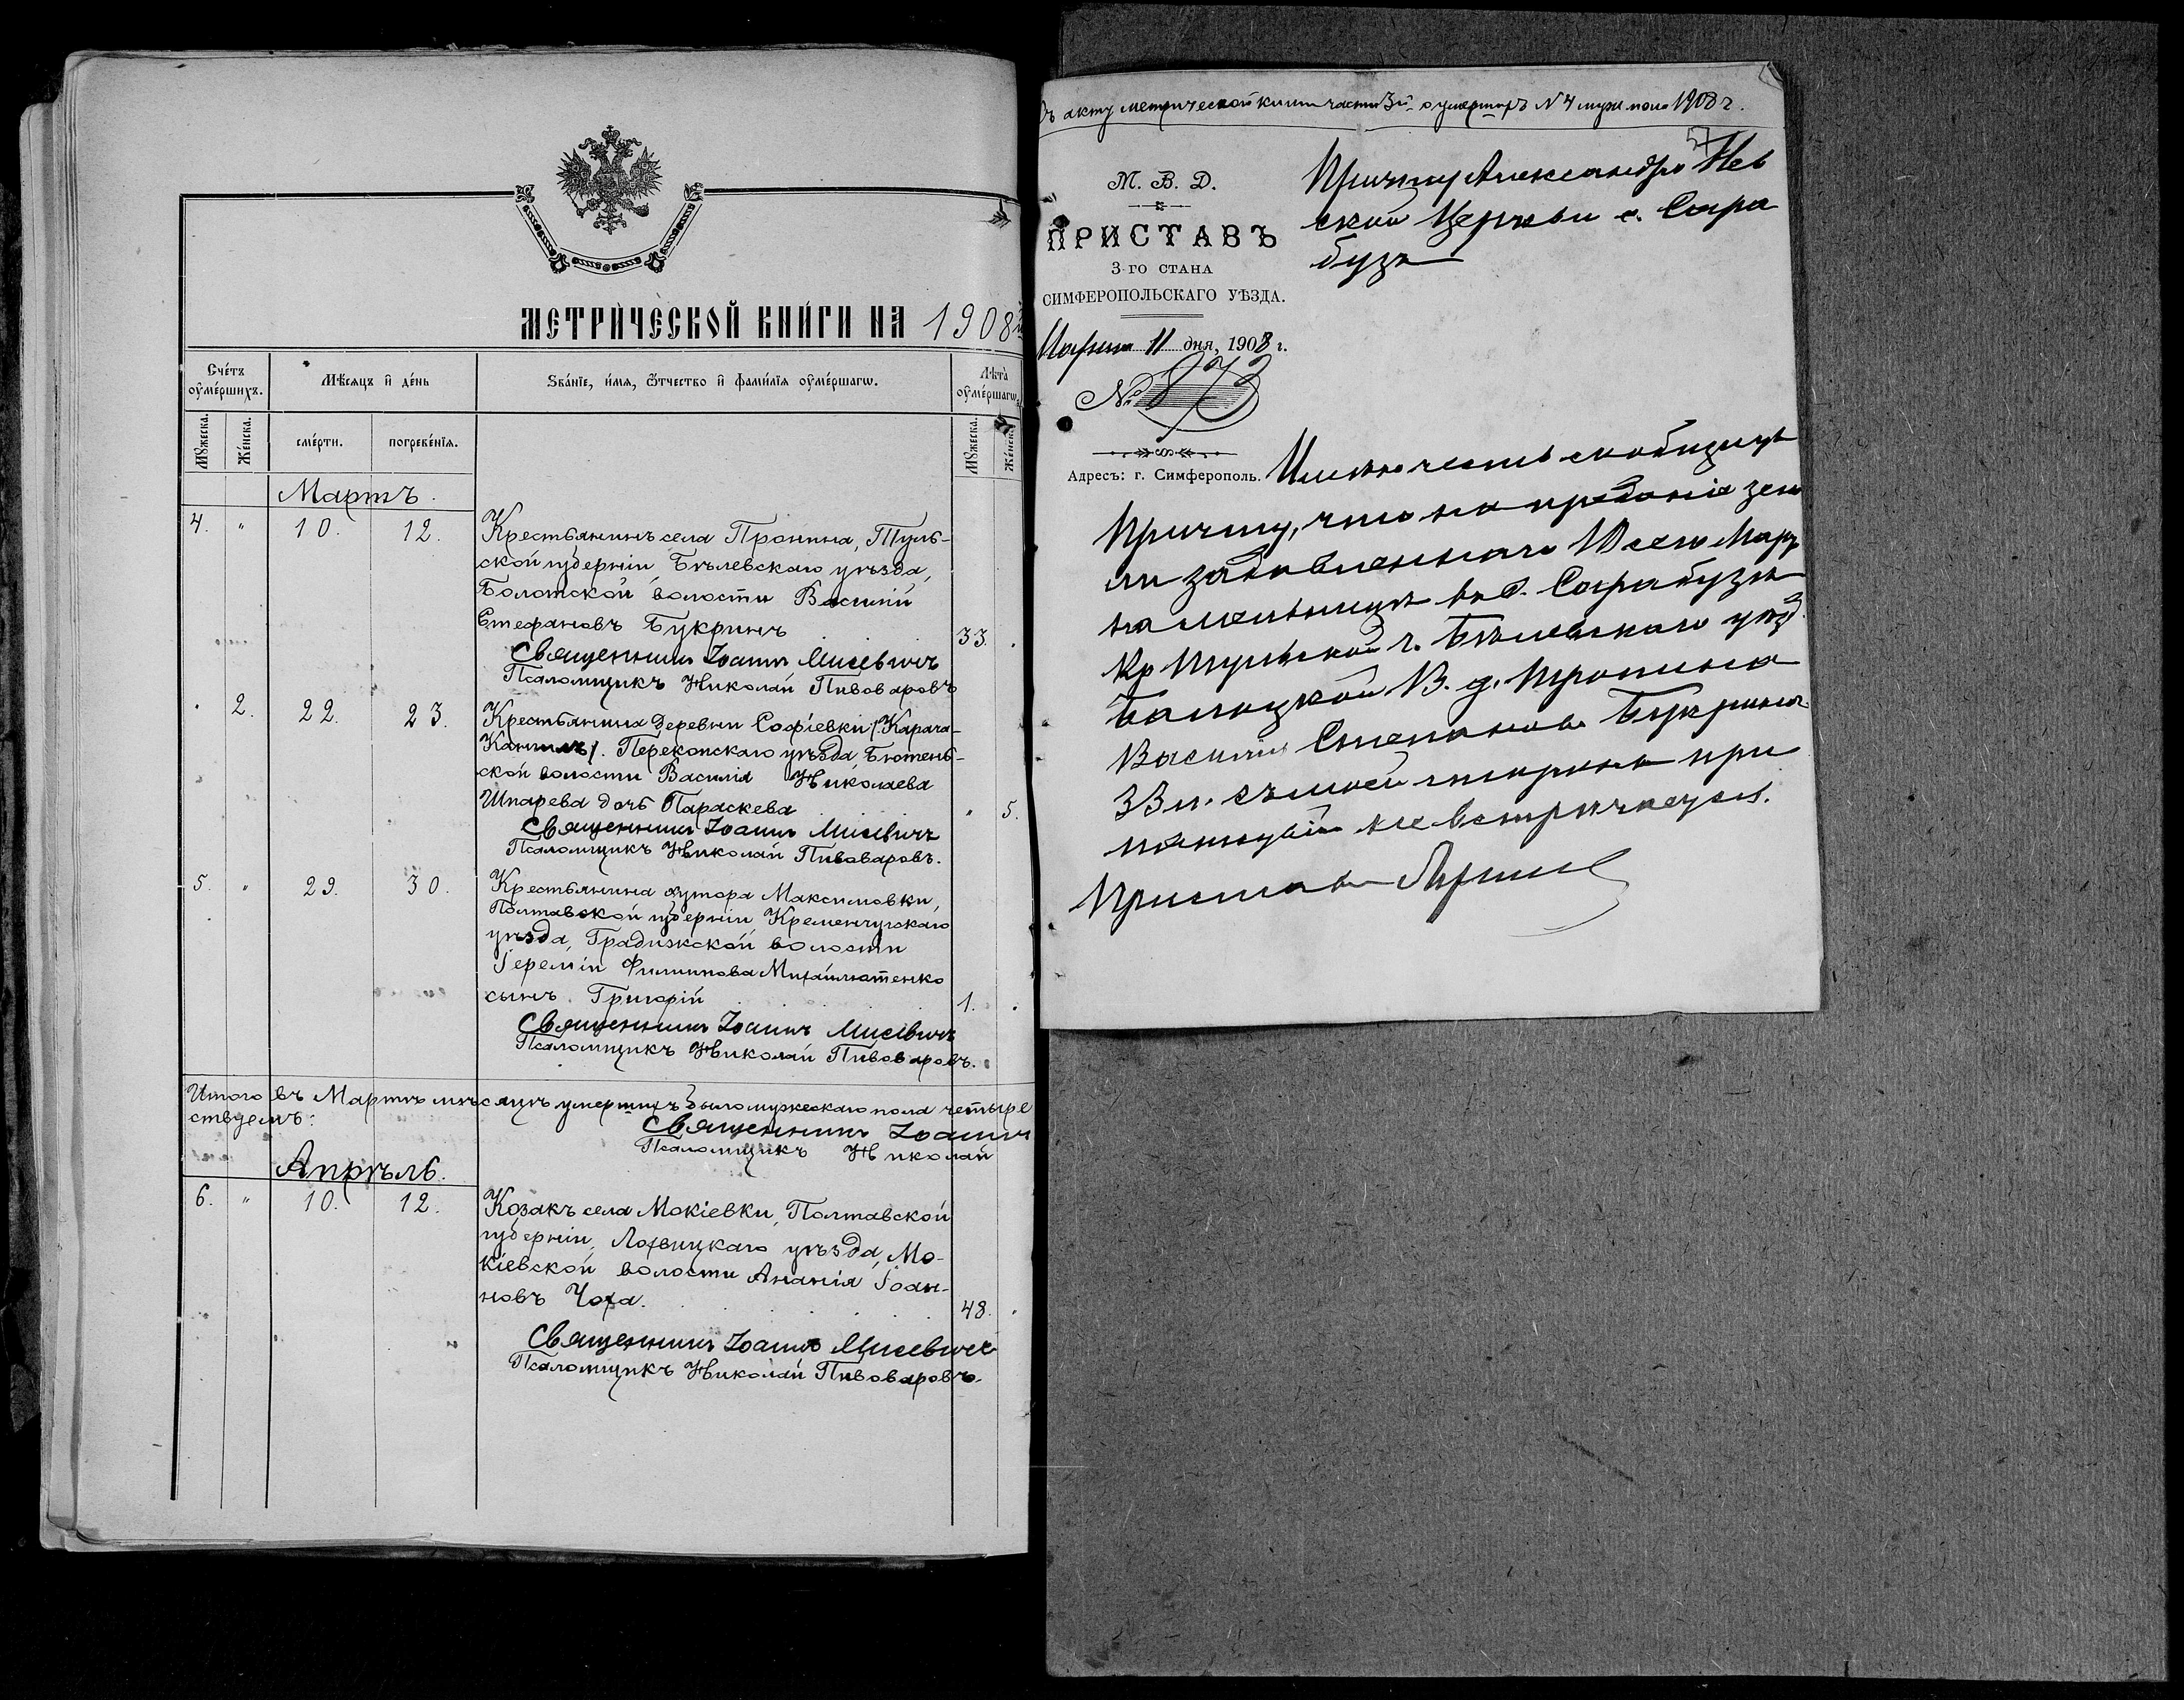 МЕТРИЧЕСКОЙ КНИГИ НА 1908й
Счетъ оумершихъ.
Мѣсяцъ и день
Званіе, имя, отчество и фамилія оумершагѡ.
Лѣта оумершагѡ.
Мужеска.
Женска.
смерти.
погребенія.
Мужеска.
Женска.
Мартъ.
4. " 10. 12. Крестьянинъ села Пронина, Туль-
ской губерніи Бѣлевскаго уѣзда,
Болотской волости Василій
Стефановъ Букринъ 33.
Священникъ Іоаннъ Мисевичъ
Псаломщикъ Николай Пивоваровъ
2. 22. 23. Крестьянина деревни Софіевки (Карача-
Кангилъ). Перекопскаго уѣзда, Бютень-
ской волости Василія Николаева
Шпарева дочь Параскева " 5.
Священникъ Іоаннъ Мисевичъ
Псаломщикъ Николай Пивоваровъ.
5. " 29. 30. Крестьянина хутора Максимовки,
Полтавской губерніи, Кременчугскаго
уѣзда, Градижской волости
Іереміи Филиппова Михайлютенко
сынъ Григорій 1.
Священникъ Іоаннъ Мисевичъ
Псаломщикъ Николай Пивоваровъ.
Итого въ Мартѣ мѣсяцѣ умершихъ было мужескаго пола четыре
ствуемъ:
Священникъ Іоаннъ
Псаломщикъ Николай
Апрѣль.
6. " 10. 12. Козакъ села Мокіевки, Полтавской
губерніи, Лохвицкаго уѣзда, Мо-
кіевской волости Ананія Іоан-
новъ Чоха. 48.
Священникъ Іоаннъ Мисевичъ
Псаломщикъ Николай Пивоваровъ.
Къ акту метрической книги части 3й о умершихъ N 4 муж. пола 1908 г.
57
М. В. Д.
ПРИСТАВЪ
3-го СТАНА
СИМФЕРОПОЛЬСКАГО УѢЗДА.
Марта 11 дня, 1908 г.
№ 873
Адресъ: г. Симферополь.
Причту Александро Нев
ской Церкви с. Сара
бузъ
Имѣю честь сообщить
Причту, что на преданіе зем
ли задавленнаго 10 сего Марта
на мельницѣ въ с. Сарабузѣ
Кр Тульской г. Бѣлевскаго уѣзд
Балоцкой В. д. Пронина
Василія Степанова Букрина
33 л. съ моей стороны при
пятствій не встрѣчается.
Приставъ